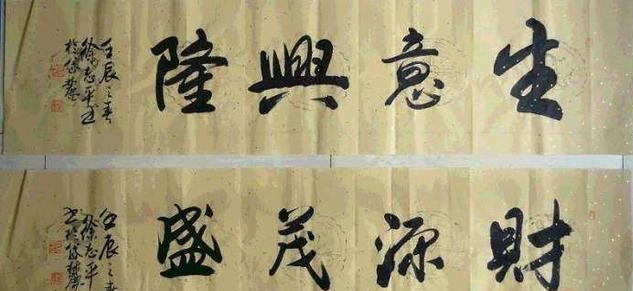 生意興隆
壬辰之春
徐志平書
財源茂盛
壬辰之春
徐志平